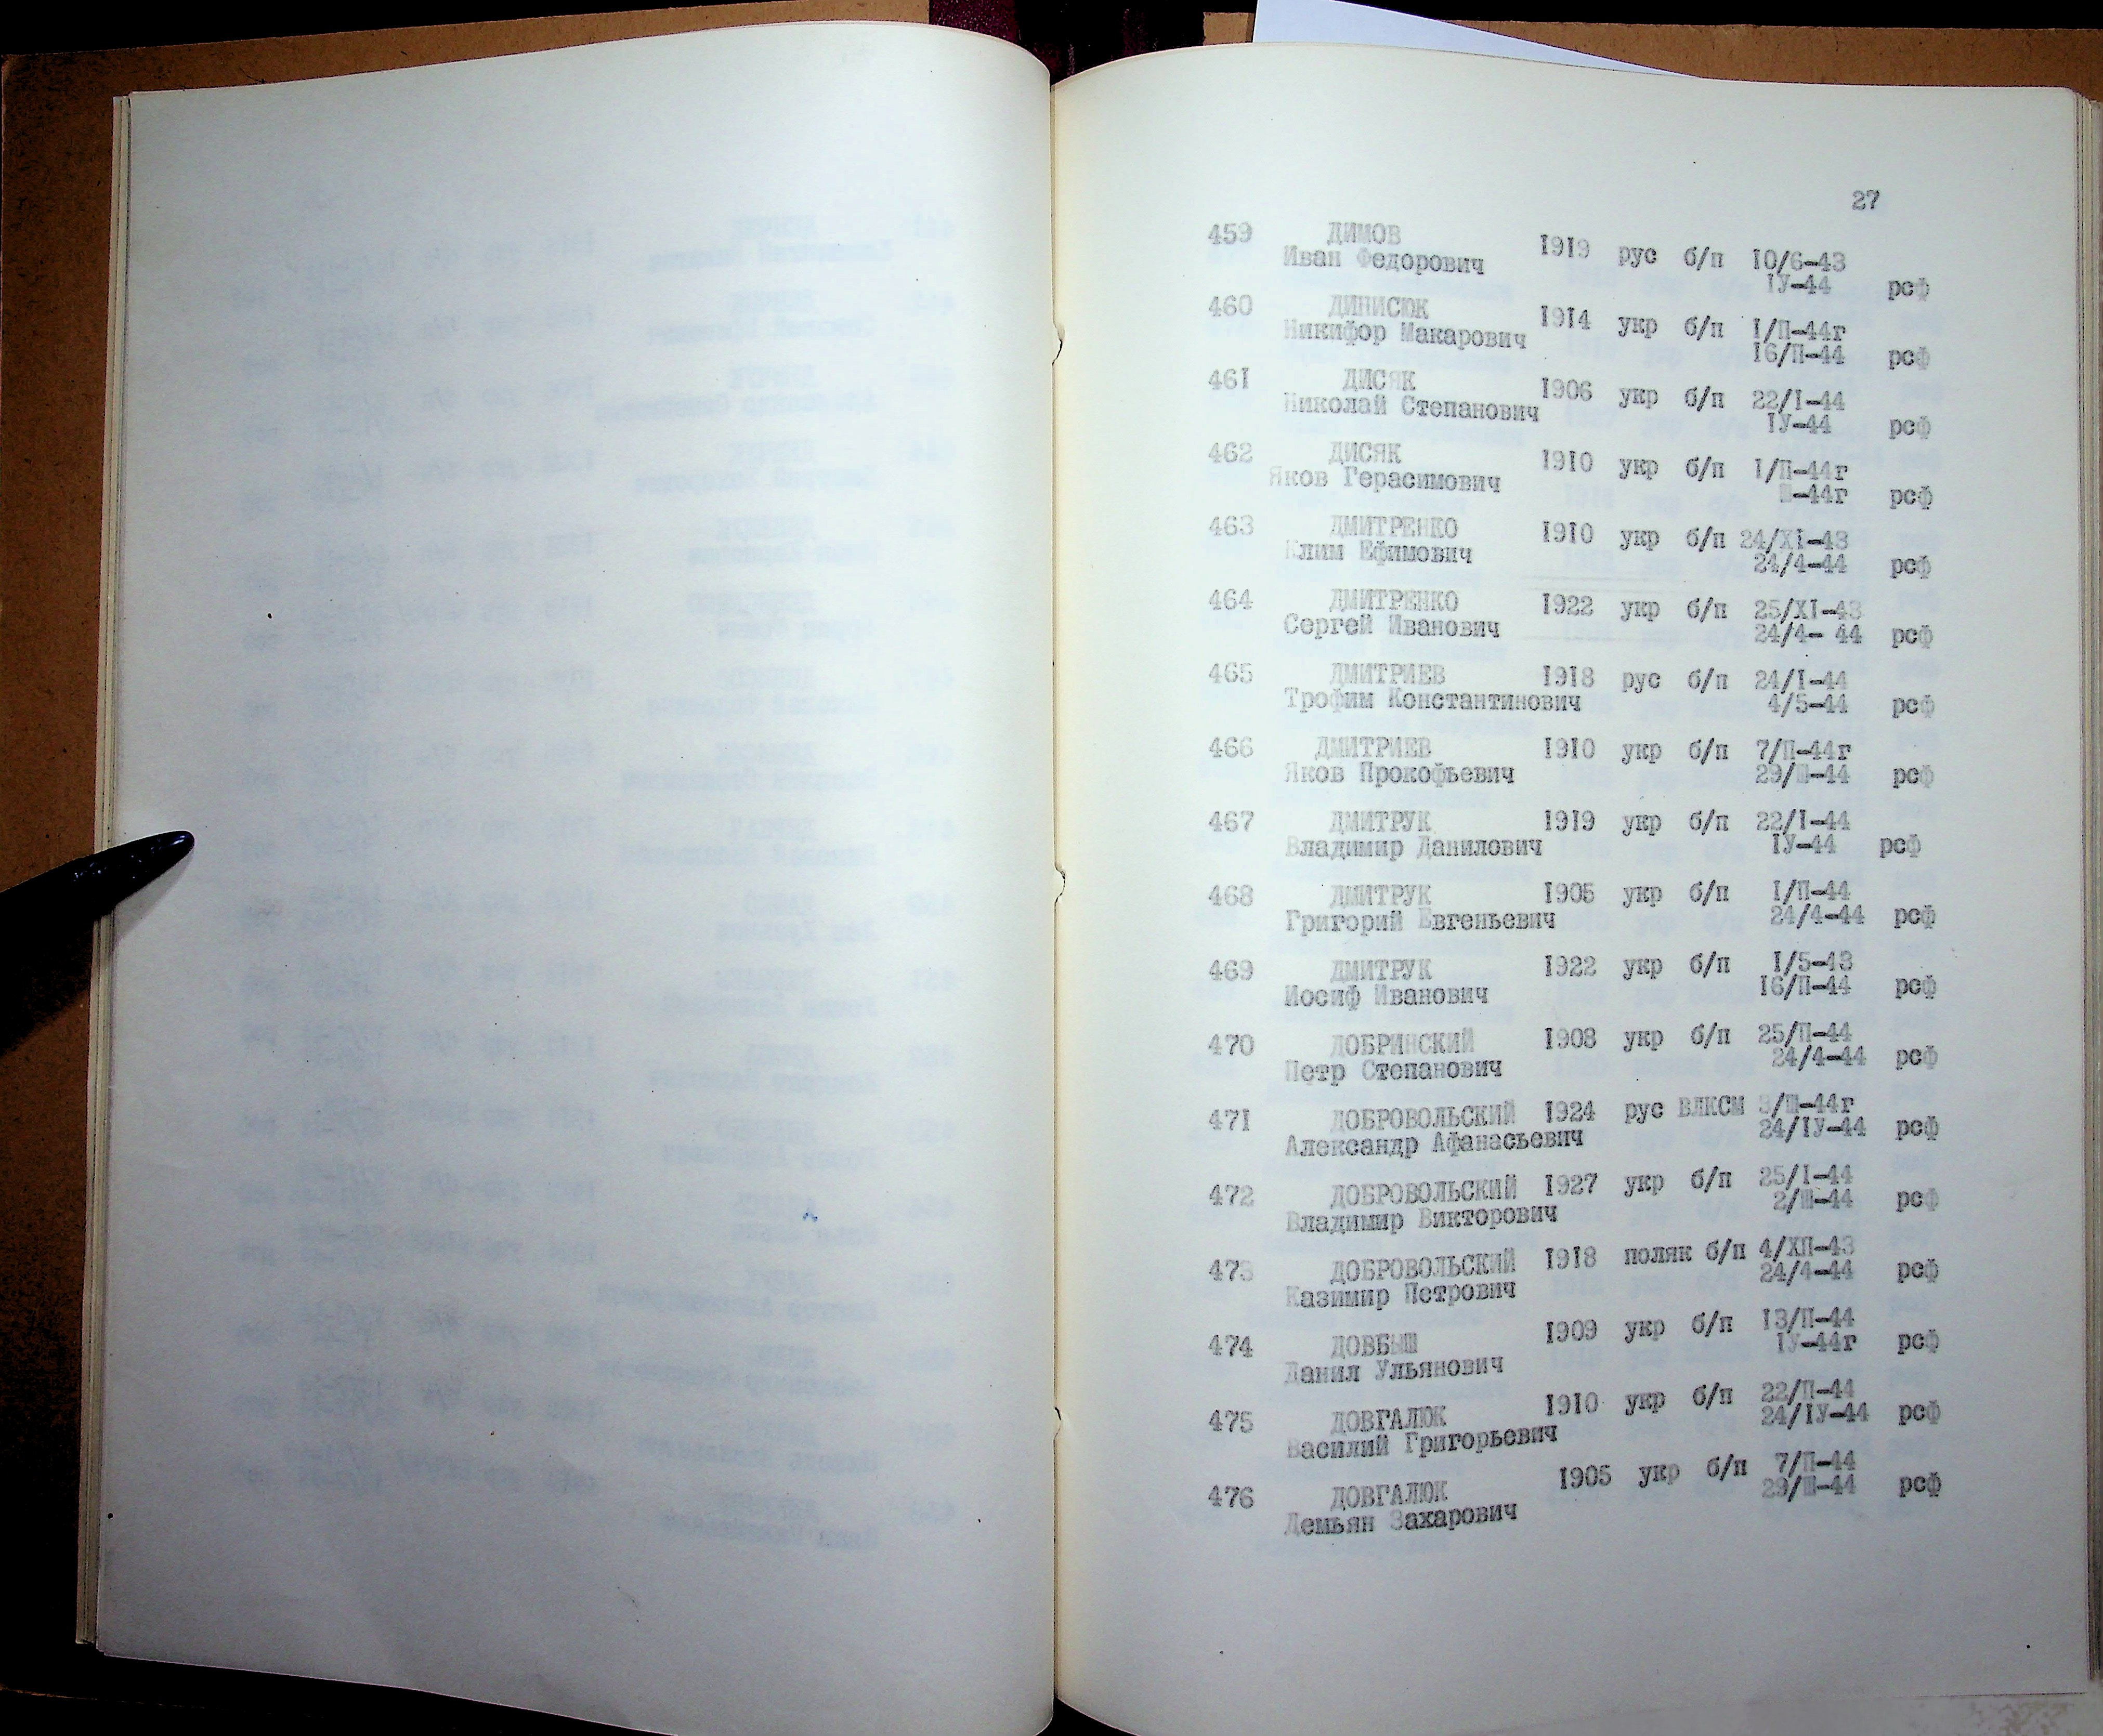 27
459 ДИМОВ 1919 рус б/п 10/6-43
Иван Федорович IУ-44 рсф
460 ДИНИСЮК 1914 укр б/п I/П-44г
Никифор Макарович 16/П-44 рсф
461 ДИСЯК 1906 укр б/п 22/I-44
Николай Степанович IУ-44 рсф
462 ДИСЯК 1910 укр б/п I/П-44г
Яков Герасимович Ш-44г рсф
463 ДМИТРЕНКО 1910 укр б/п 24/XI-43
Клим Ефимович 24/4-44 рсф
464 ДМИТРЕНКО 1922 укр б/п 25/XI-43
Сергей Иванович 24/4- 44 рсф
465 ДМИТРИЕВ 1918 рус б/п 24/I-44
Трофим Константинович 4/5-44 рсф
466 ДМИТРИЕВ 1910 укр б/п 7/П-44г
Яков Прокофьевич 29/Ш-44 рсф
467 ДМИТРУК 1919 укр б/п 22/I-44
Владимир Данилович IУ-44 рсф
468 ДМИТРУК 1905 укр б/п I/П-44
Григорий Евгеньевич 24/4-44 рсф
469 ДМИТРУК 1922 укр б/п I/5-43
Иосиф Иванович 16/П-44 рсф
470 ДОБРИНСКИЙ 1908 укр б/п 25/П-44
Петр Степанович 24/4-44 рсф
471 ДОБРОВОЛЬСКИЙ 1924 рус ВЛКСМ 3/Ш-44г
Александр Афанасьевич 24/IУ-44 рсф
472 ДОБРОВОЛЬСКИЙ 1927 укр б/п 25/I-44
Владимир Викторович 2/Ш-44 рсф
473 ДОБРОВОЛЬСКИЙ 1918 поляк б/п 4/ХП-43
Казимир Петрович 24/4-44 рсф
474 ДОВБЫШ 1909 укр б/п 13/П-44
Данил Ульянович IУ-44г рсф
475 ДОВГАЛЮК 1910 укр б/п 22/П-44
Василий Григорьевич 24/IУ-44 рсф
476 ДОВГАЛЮК 1905 укр б/п 7/П-44
Демьян Захарович 29/Ш-44 рсф